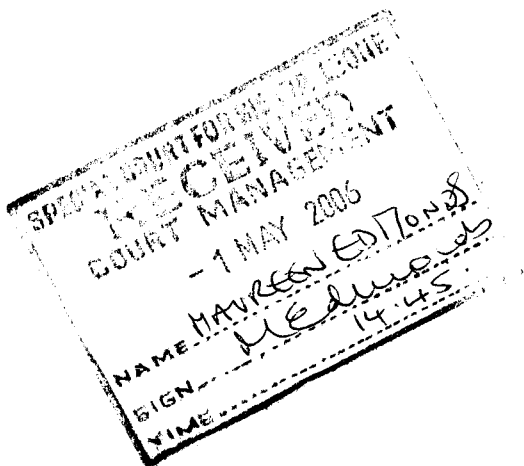 SPECIAL COURT FOR SIERRA LEONE
RECEIVED
COURT MANAGEMENT
- 1 MAY 2006
NAME MAUREEN EDMONDS
SIGN MEdmonds
TIME 14:45